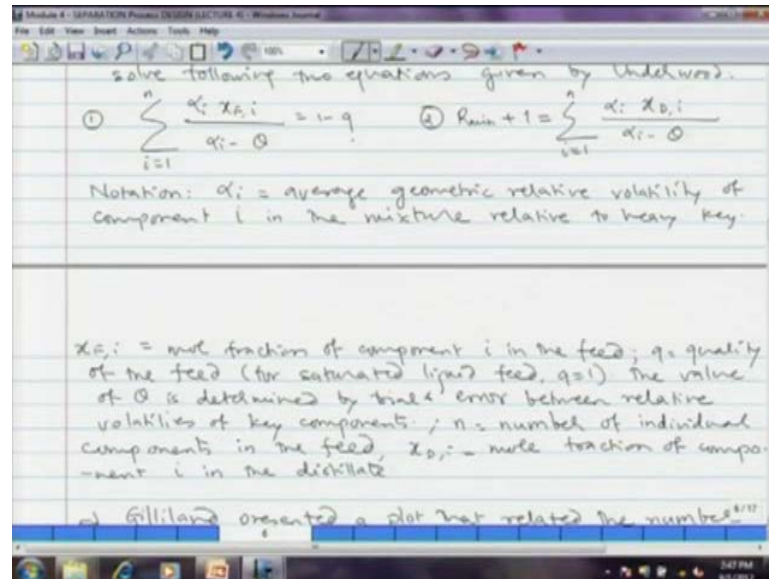 Module 4 - SEPARATION Process DESIGN (LECTURE 4) - Windows Journal
File Edit View Insert Actions Tools Help
100%
solve following two equations given by Underwood.
① n ∑ i=1 αi xF,i / αi - θ = 1 - q ② Rmin + 1 = n ∑ i=1 αi xD,i / αi - θ
Notation: αi = average geometric relative volatility of
component i in the mixture relative to heavy key.
xF,i = mol fraction of component i in the feed; q = quality
of the feed (for saturated liquid feed, q=1) The value
of θ is determined by trial & error between relative
volatilities of key components; n = number of individual
components in the feed, xD,i = mole fraction of compo-
-nent i in the distillate
Gilliland presented a plot that related the number
6/17
6
2:47 PM